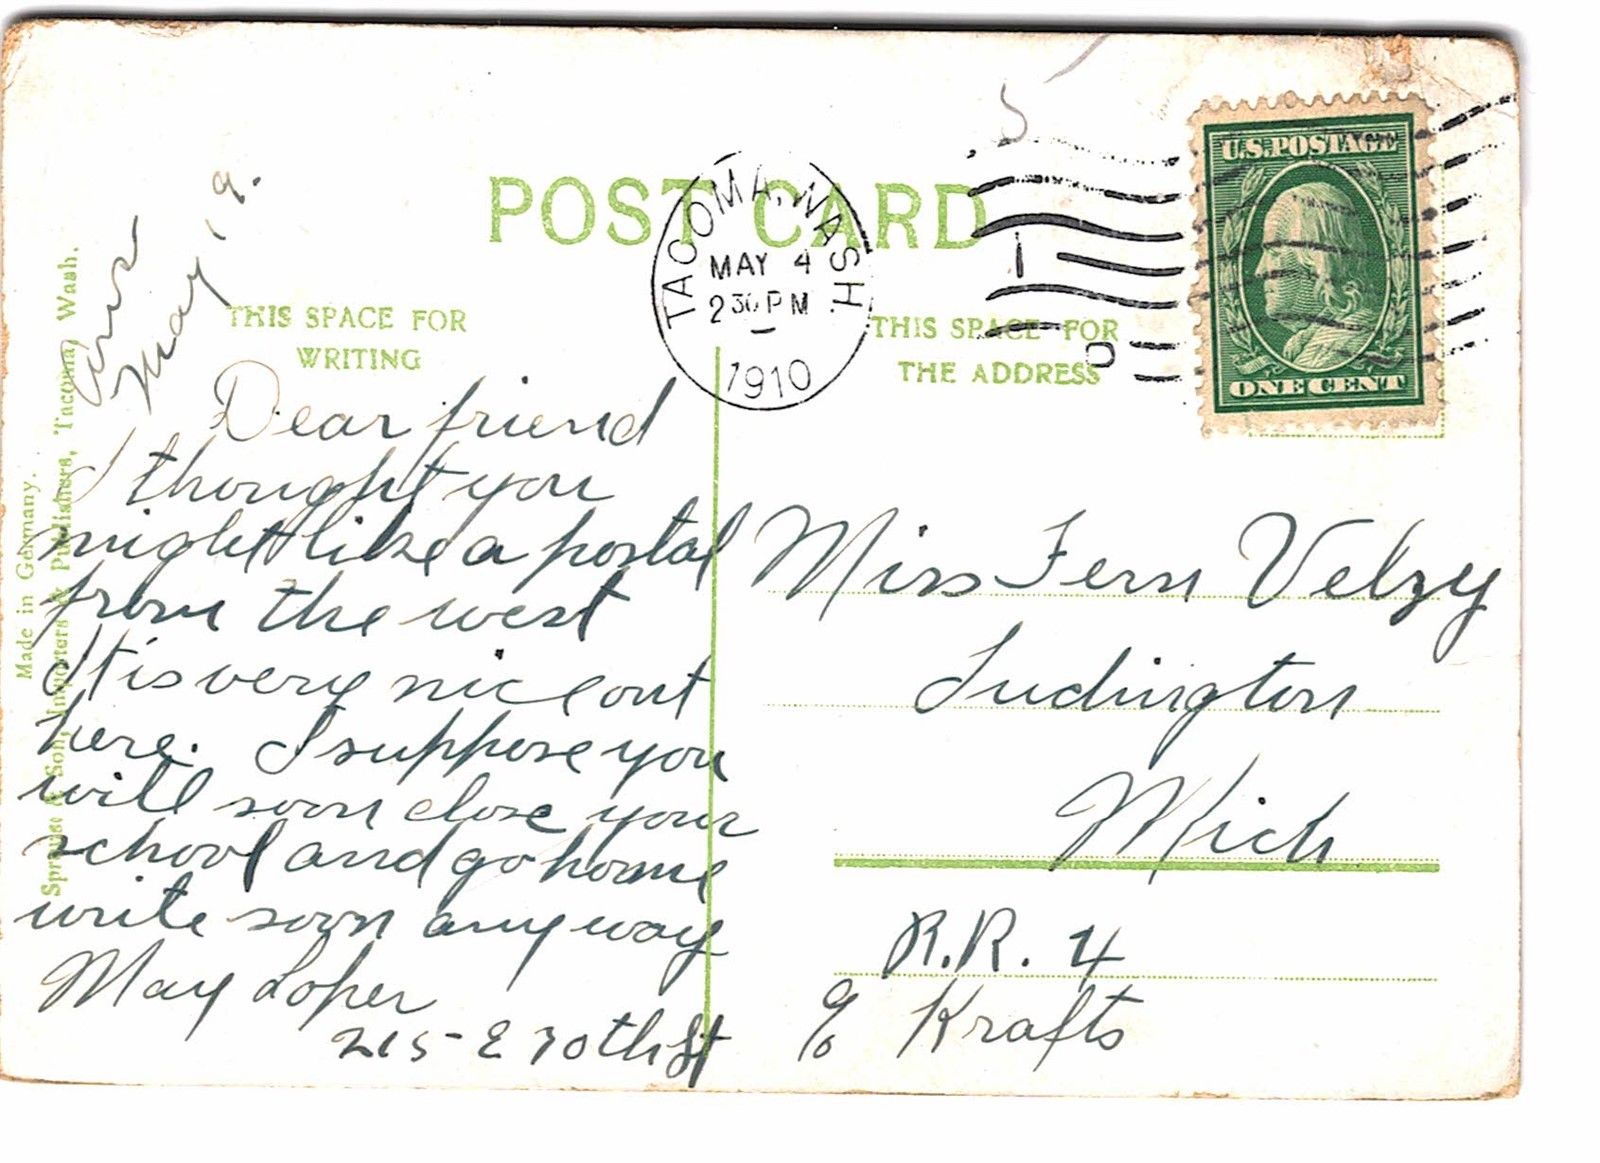 POST CARD
TACOMA, WASH.
MAY 4
230 PM
1910
U.S. POSTAGE
ONE CENT
THIS SPACE FOR
WRITING
THIS SPACE FOR
THE ADDRESS
Ans
May 19.
Dear friend
I thought you
might like a postal
from the west
It is very nice out
here. I suppose you
will soon close your
school and go home
write soon anyway
May Loper
215 - E 70th St
Miss Fern Velzy
Ludington
Mich.
R.R. 4
c/o Krafts
Made in Germany.
Sprouse & Son, Importers & Publishers, Tacoma, Wash.